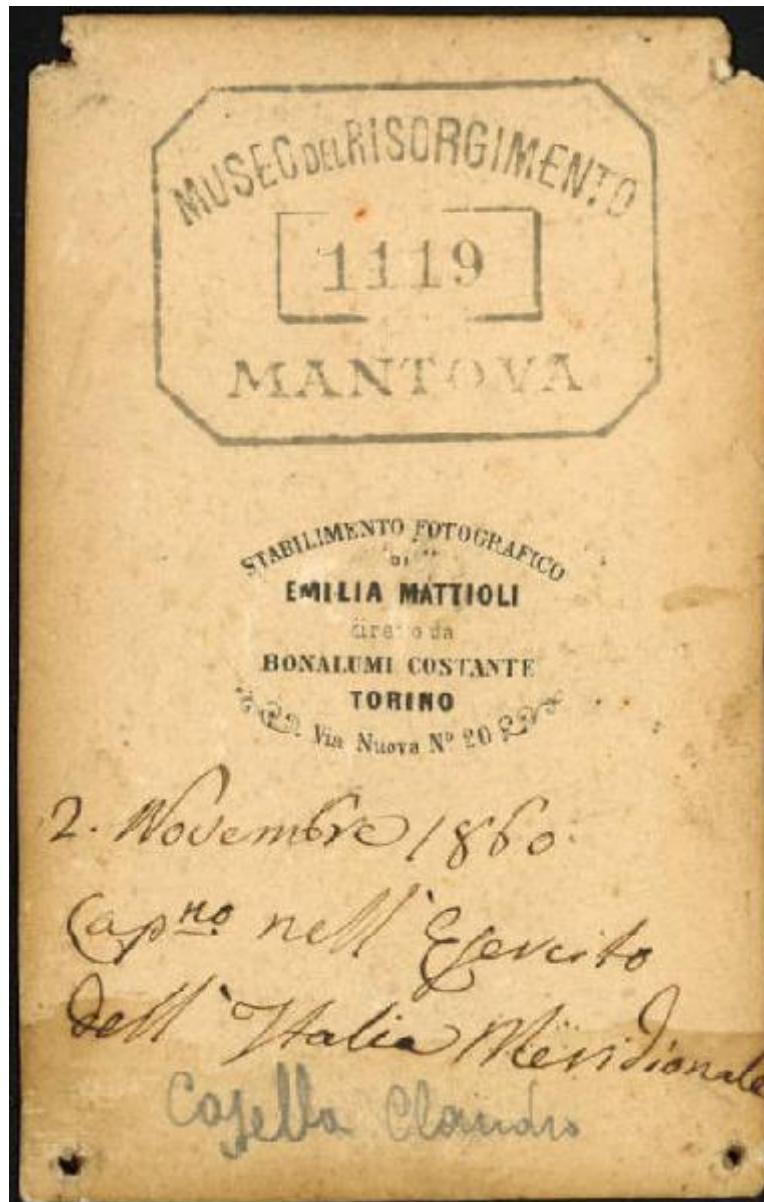 MUSEO DEL RISORGIMENTO
1119
MANTOVA
STABILIMENTO FOTOGRAFICO
DI
EMILIA MATTIOLI
diretto da
BONALUMI COSTANTE
TORINO
Via Nuova Nº 20
2. Novembre 1860.
Capno nell' Esercito
dell' Italia Meridionale
Casella Claudio